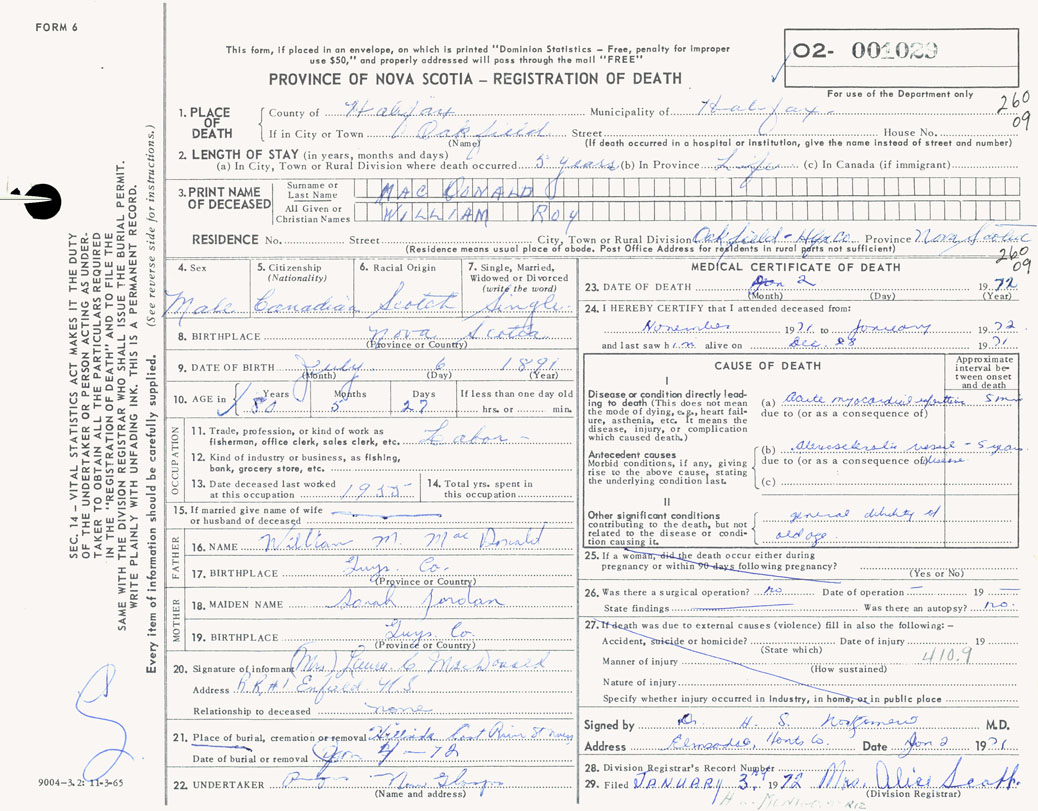 FORM 6
This form, if placed in an envelope, on which is printed "Dominion Statistics – Free, penalty for improper
use $50," and properly addressed will pass through the mail "FREE"
PROVINCE OF NOVA SCOTIA – REGISTRATION OF DEATH
O2- 001029
For use of the Department only
260
09
1. PLACE OF DEATH
County of Halifax Municipality of Halifax
If in City or Town Oakfield Street House No.
(Name) (If death occurred in a hospital or institution, give the name instead of street and number)
2. LENGTH OF STAY (in years, months and days)
(a) In City, Town or Rural Division where death occurred 5 years (b) In Province Life (c) In Canada (if immigrant)
3. PRINT NAME OF DECEASED
Surname or Last Name MAC DONALD
All Given or Christian Names WILLIAM ROY
RESIDENCE No. Street City, Town or Rural Division Oakfield - Hfx Co. Province Nova Scotia
(Residence means usual place of abode. Post Office Address for residents in rural parts not sufficient)
260
09
4. Sex Male
5. Citizenship (Nationality) Canadian
6. Racial Origin Scotch
7. Single, Married, Widowed or Divorced (write the word) Single
8. BIRTHPLACE Nova Scotia
(Province or Country)
9. DATE OF BIRTH July 6 1891
(Month) (Day) (Year)
10. AGE in Years 80 Months 5 Days 27 If less than one day old hrs. or min.
OCCUPATION
11. Trade, profession, or kind of work as fishermen, office clerk, sales clerk, etc. Labor -
12. Kind of industry or business, as fishing, bank, grocery store, etc.
13. Date deceased last worked at this occupation 1955
14. Total yrs. spent in this occupation
15. If married give name of wife or husband of deceased
FATHER
16. NAME William M. Mac Donald
17. BIRTHPLACE Guys. Co.
(Province or Country)
MOTHER
18. MAIDEN NAME Sarah Jordan
19. BIRTHPLACE Guys Co.
(Province or Country)
20. Signature of informant (Mrs) C MacDonald
Address R.R.#1 Enfield N.S.
Relationship to deceased none
21. Place of burial, cremation or removal Hillside East River St Marys
Date of burial or removal Jan 4 - 72
22. UNDERTAKER
(Name and address)
MEDICAL CERTIFICATE OF DEATH
23. DATE OF DEATH Jan 2 1972
(Month) (Day) (Year)
24. I HEREBY CERTIFY that I attended deceased from:
November 1971 to January 1972
and last saw him alive on Dec. 28 1971
CAUSE OF DEATH
Approximate interval between onset and death
I
Disease or condition directly leading to death (This does not mean the mode of dying, e.g., heart failure, asthenia, etc. It means the disease, injury, or complication which caused death.)
(a) Acute myocardial infarction 5 min
due to (or as a consequence of)
Antecedent causes
Morbid conditions, if any, giving rise to the above cause, stating the underlying condition last.
(b) Atherosclerotic vessel - 5 years
due to (or as a consequence of) disease
(c)
II
Other significant conditions contributing to the death, but not related to the disease or condition causing it.
general debility of
old age.
25. If a woman, did the death occur either during
pregnancy or within 90 days following pregnancy?
(Yes or No)
26. Was there a surgical operation? no Date of operation 19
State findings Was there an autopsy? no.
27. If death was due to external causes (violence) fill in also the following: –
Accident, suicide or homicide? Date of injury 19
(State which)
Manner of injury 410.9
(How sustained)
Nature of injury
Specify whether injury occurred in industry, in home, or in public place
Signed by Dr. H. S. M.D.
Address Elmsdale, Hants Co. Date Jan 2 1971
28. Division Registrar's Record Number
29. Filed JANUARY 3rd 1972 Mrs. Alice Scott.
(Division Registrar)
SEC. 14 – VITAL STATISTICS ACT MAKES IT THE DUTY
OF THE UNDERTAKER OR PERSON ACTING AS UNDER-
TAKER TO OBTAIN ALL THE PARTICULARS REQUIRED
IN THE "REGISTRATION OF DEATH" AND TO FILE THE
SAME WITH THE DIVISION REGISTRAR WHO SHALL ISSUE THE BURIAL PERMIT.
WRITE PLAINLY WITH UNFADING INK. THIS IS A PERMANENT RECORD.
Every item of information should be carefully supplied. (See reverse side for instructions.)
9004-3.2: 11-3-65